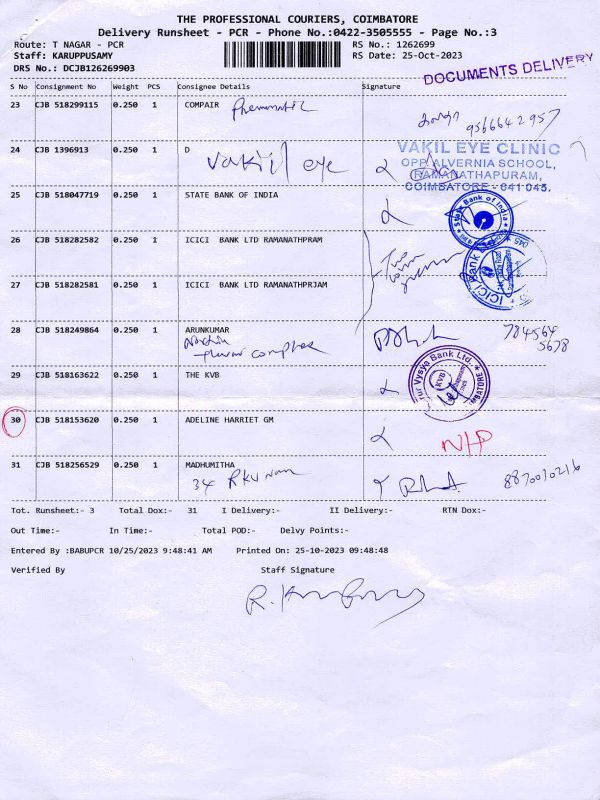 THE PROFESSIONAL COURIERS, COIMBATORE
Delivery Runsheet - PCR - Phone No.:0422-3505555 - Page No.:3
Route: T NAGAR - PCR RS No.: 1262699
Staff: KARUPPUSAMY RS Date: 25-Oct-2023
DRS No.: DCJB126269903 DOCUMENTS DELIVERY
S No Consignment No Weight PCS Consignee Details Signature
23 CJB 518299115 0.250 1 COMPAIR
9566642957
24 CJB 1396913 0.250 1 D
Vakil eye
VAKIL EYE CLINIC
OPP.ALVERNIA SCHOOL,
RAMANATHAPURAM,
COIMBATORE - 641 045.
25 CJB 518047719 0.250 1 STATE BANK OF INDIA
State Bank of India
26 CJB 518282582 0.250 1 ICICI BANK LTD RAMANATHPRAM
ICICI Bank Ltd
27 CJB 518282581 0.250 1 ICICI BANK LTD RAMANATHPRJAM
28 CJB 518249864 0.250 1 ARUNKUMAR
complex
784564
5678
29 CJB 518163622 0.250 1 THE KVB
Vysya Bank Ltd.
KVB
30 CJB 518153620 0.250 1 ADELINE HARRIET GM
N/P
31 CJB 518256529 0.250 1 MADHUMITHA
34 RKV
8870010216
Tot. Runsheet:- 3 Total Dox:- 31 I Delivery:- II Delivery:- RTN Dox:-
Out Time:- In Time:- Total POD:- Delvy Points:-
Entered By :BABUPCR 10/25/2023 9:48:41 AM Printed On: 25-10-2023 09:48:48
Verified By Staff Signature